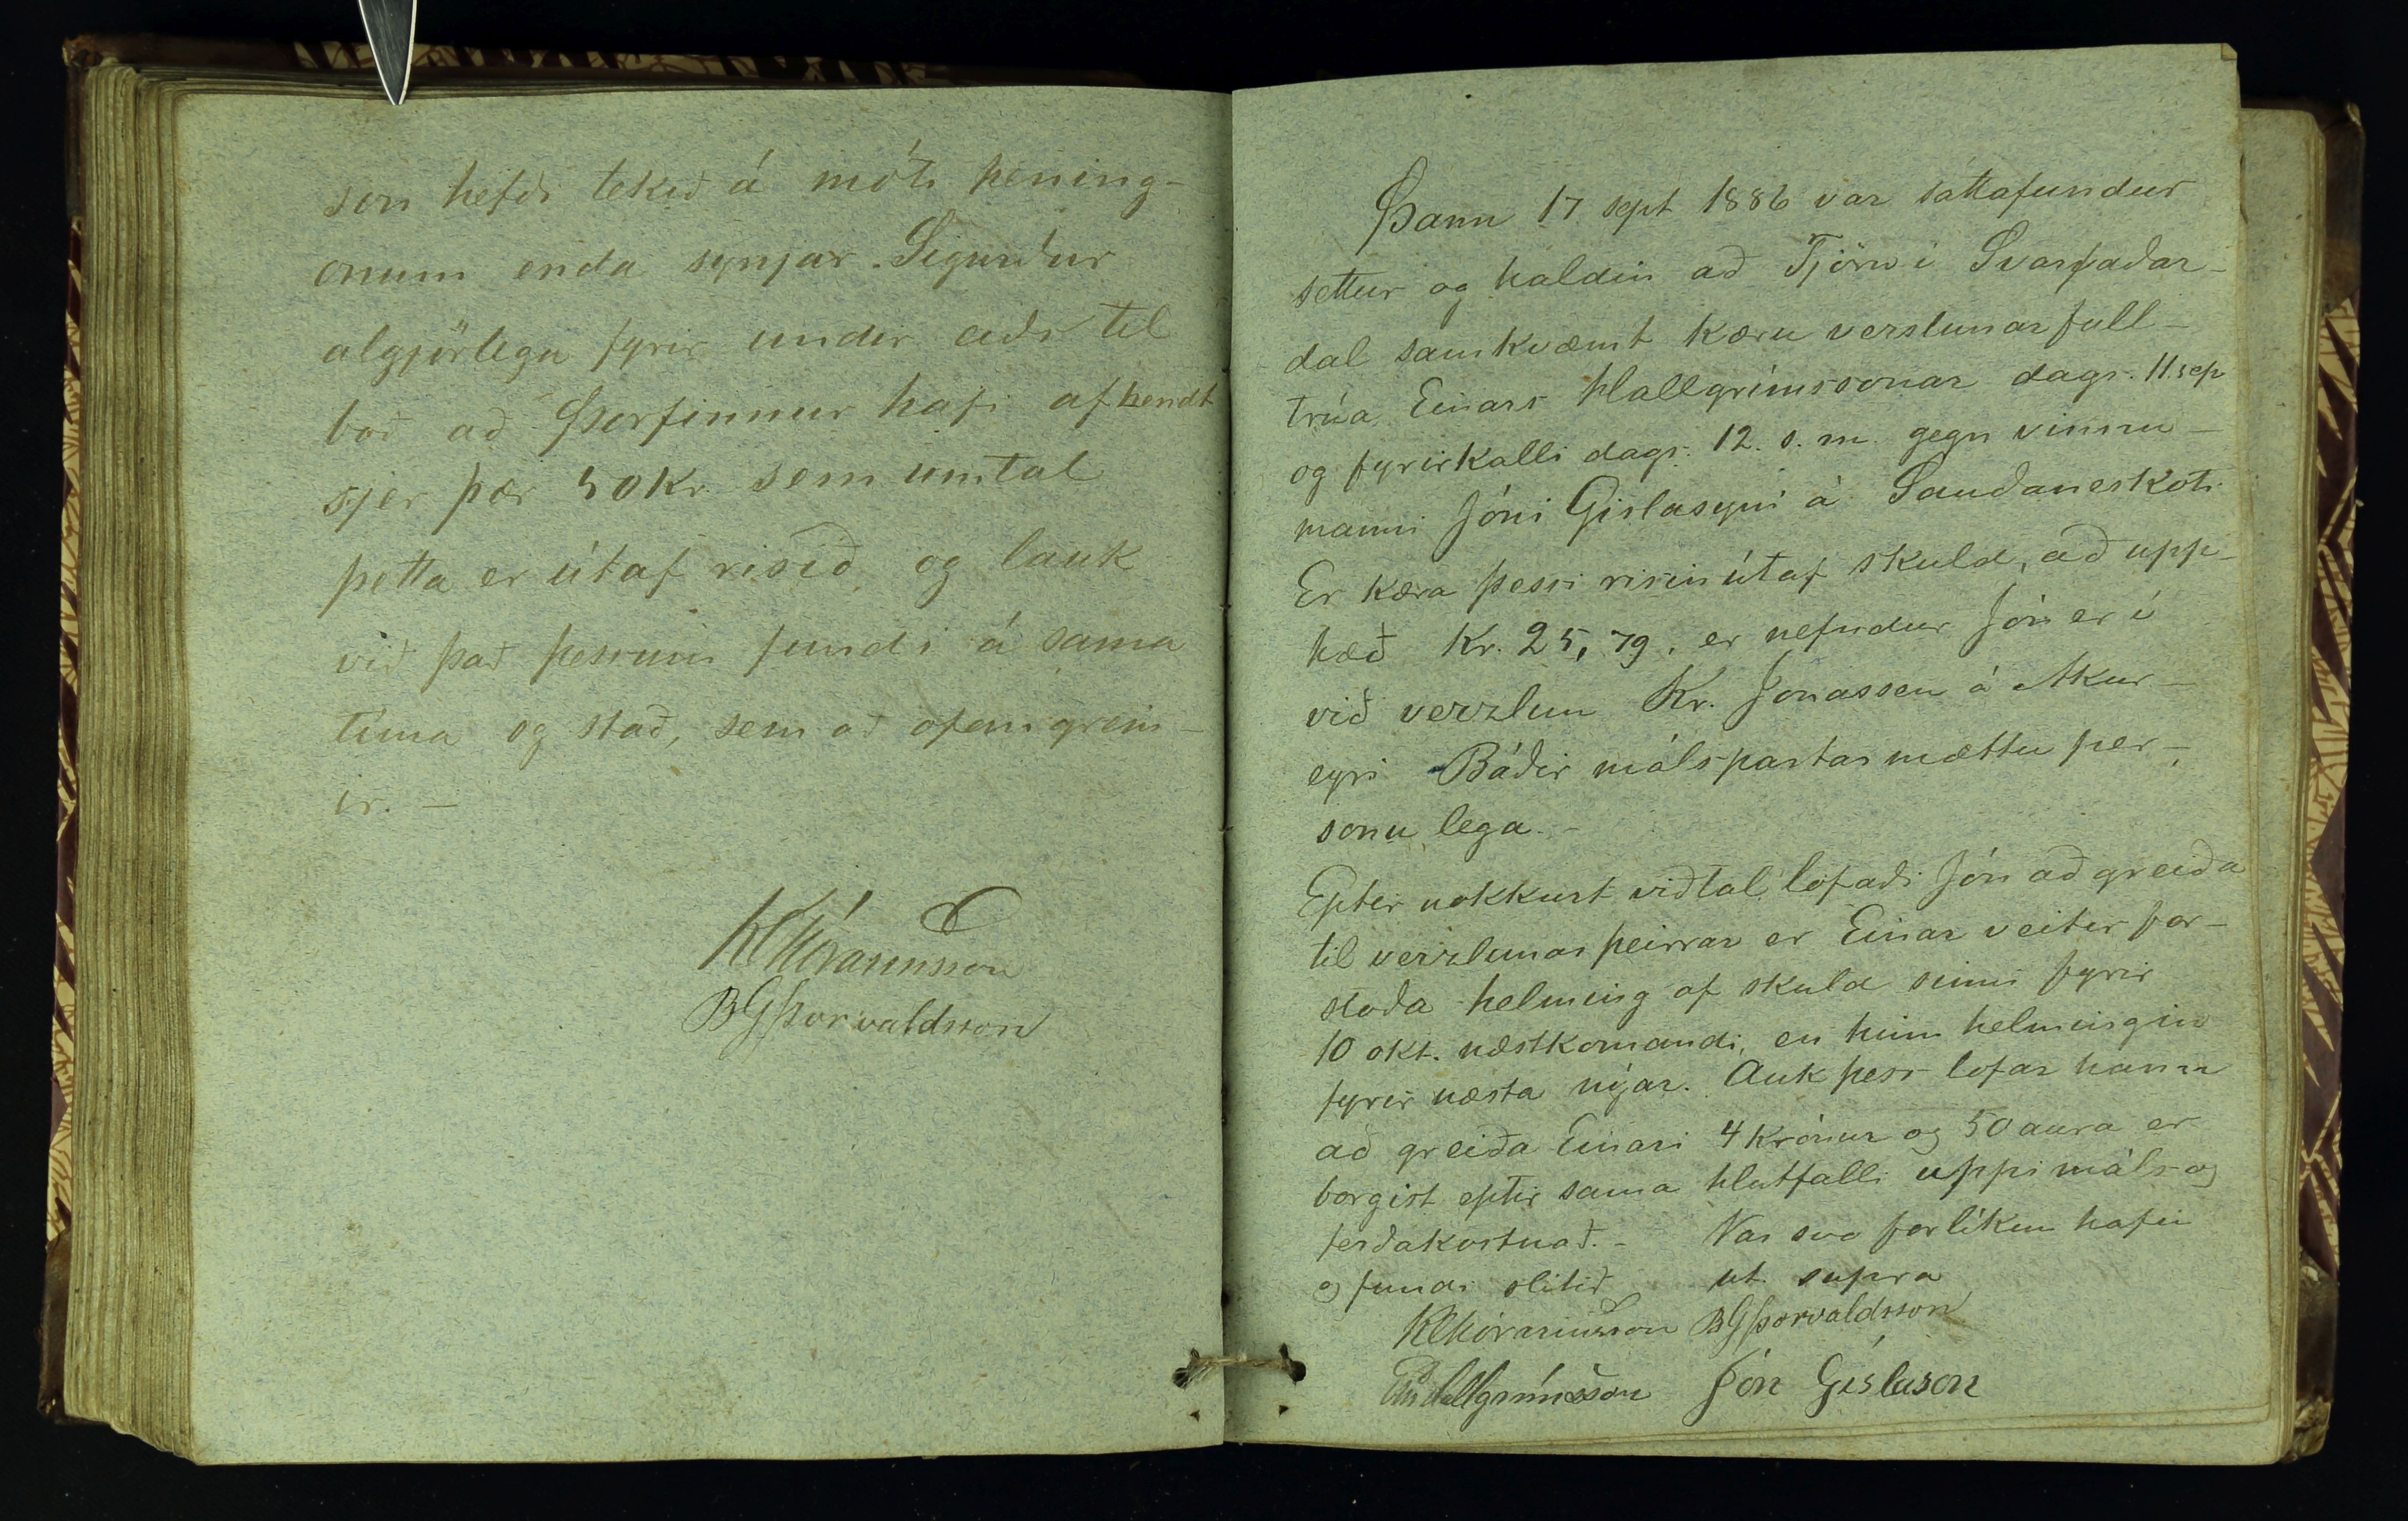 son hefði tekið á móti pening-
onum enda synjar Sigurður
algjörlega fyrir undir eiðs til
boð að Þorfinnur hafi afhendt
sjer þær 50 Kr. sem umtal
þetta er útaf risið, og lauk
við það þessum fundi á sama
tíma og stað, sem að ofan grein-
ir. —
B G Þorvaldsson
Þann 17 sept 1886 var sáttafundur
settur og haldin að Tjörn í Svarfaðar-
dal samkvæmt kæru verslunarfull-
trúa Einars Hallgrímssonar dags. 11. sep
og fyrirkalli dags. 12. s. m. gegn vinnu-
manni Jóni Gíslasyni á Sauðaneskoti
Er kæra þessi risin útaf skuld, að upp-
hæð Kr. 25,79, er nefndur Jón er í
við verzlun Kr. Jonassen á Akur-
eyri Báðir málspartar mættu per-
sónu lega. -
Eptir nokkurt viðtal lofaði Jón að greiða
til verzlunar þeirrar er Einar veitir for-
stöða helming af skuld sinni fyrir
10 okt. næstkomandi, en hinn helmingin
fyrir næsta nýjar. Auk þess lofar hann
að greiða Einari 4 krónur og 50 aura er
borgist eptir sama hlutfalli uppi máls- og
ferðakostnað. - Var svo forlíkun hafin
og fundi slitið ut supra
B G Þorvaldsson
Hallgrímsson Jón Gíslason